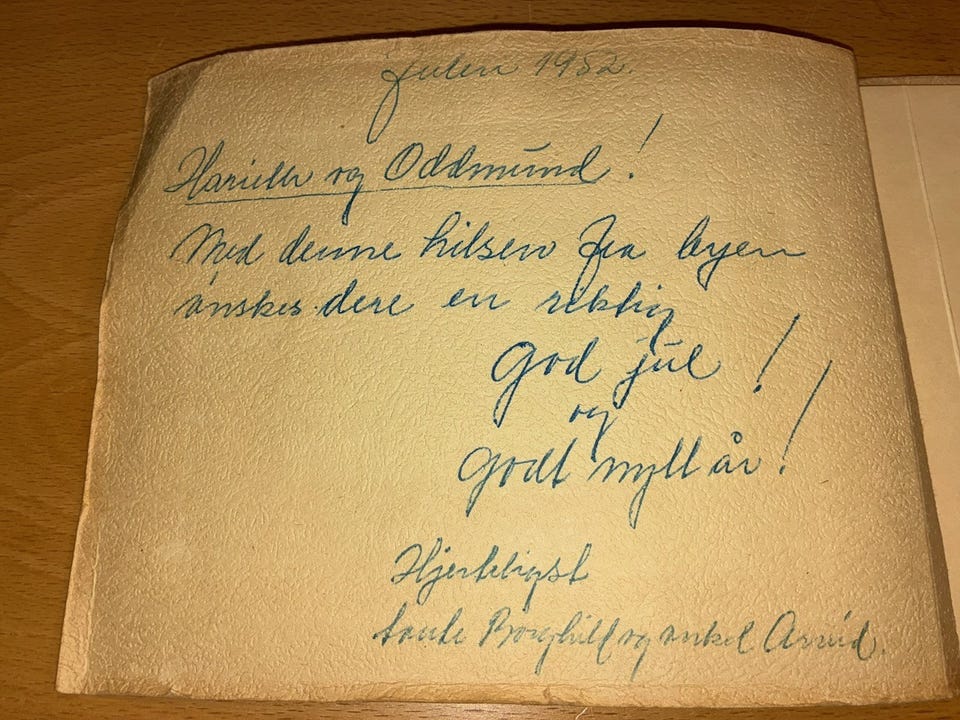 Julen 1952.
Harielle og Oddmund!
Med denne hilsen fra byen
ønskes dere en riktig
God jul!
og
Godt nytt år!
Hjerteligst
tante Borghild og onkel Arvid.